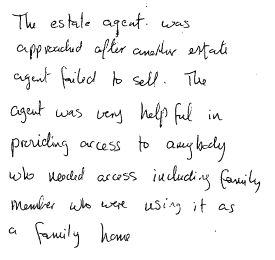 The estate agent. was
approached after another estate
agent failed to sell. The
agent was very helpful in
providing access to anybody
who needed access including family
member who were using it as
a family home